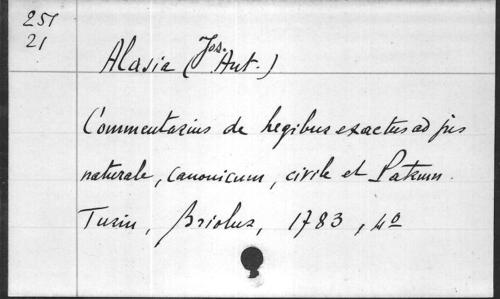 251
21
Alasia (Jos. Ant.)
Commentarius de legibus exactus ad jus
naturale, canonicum, civile et Patrum.
Turin, Briolus, 1783, 4º